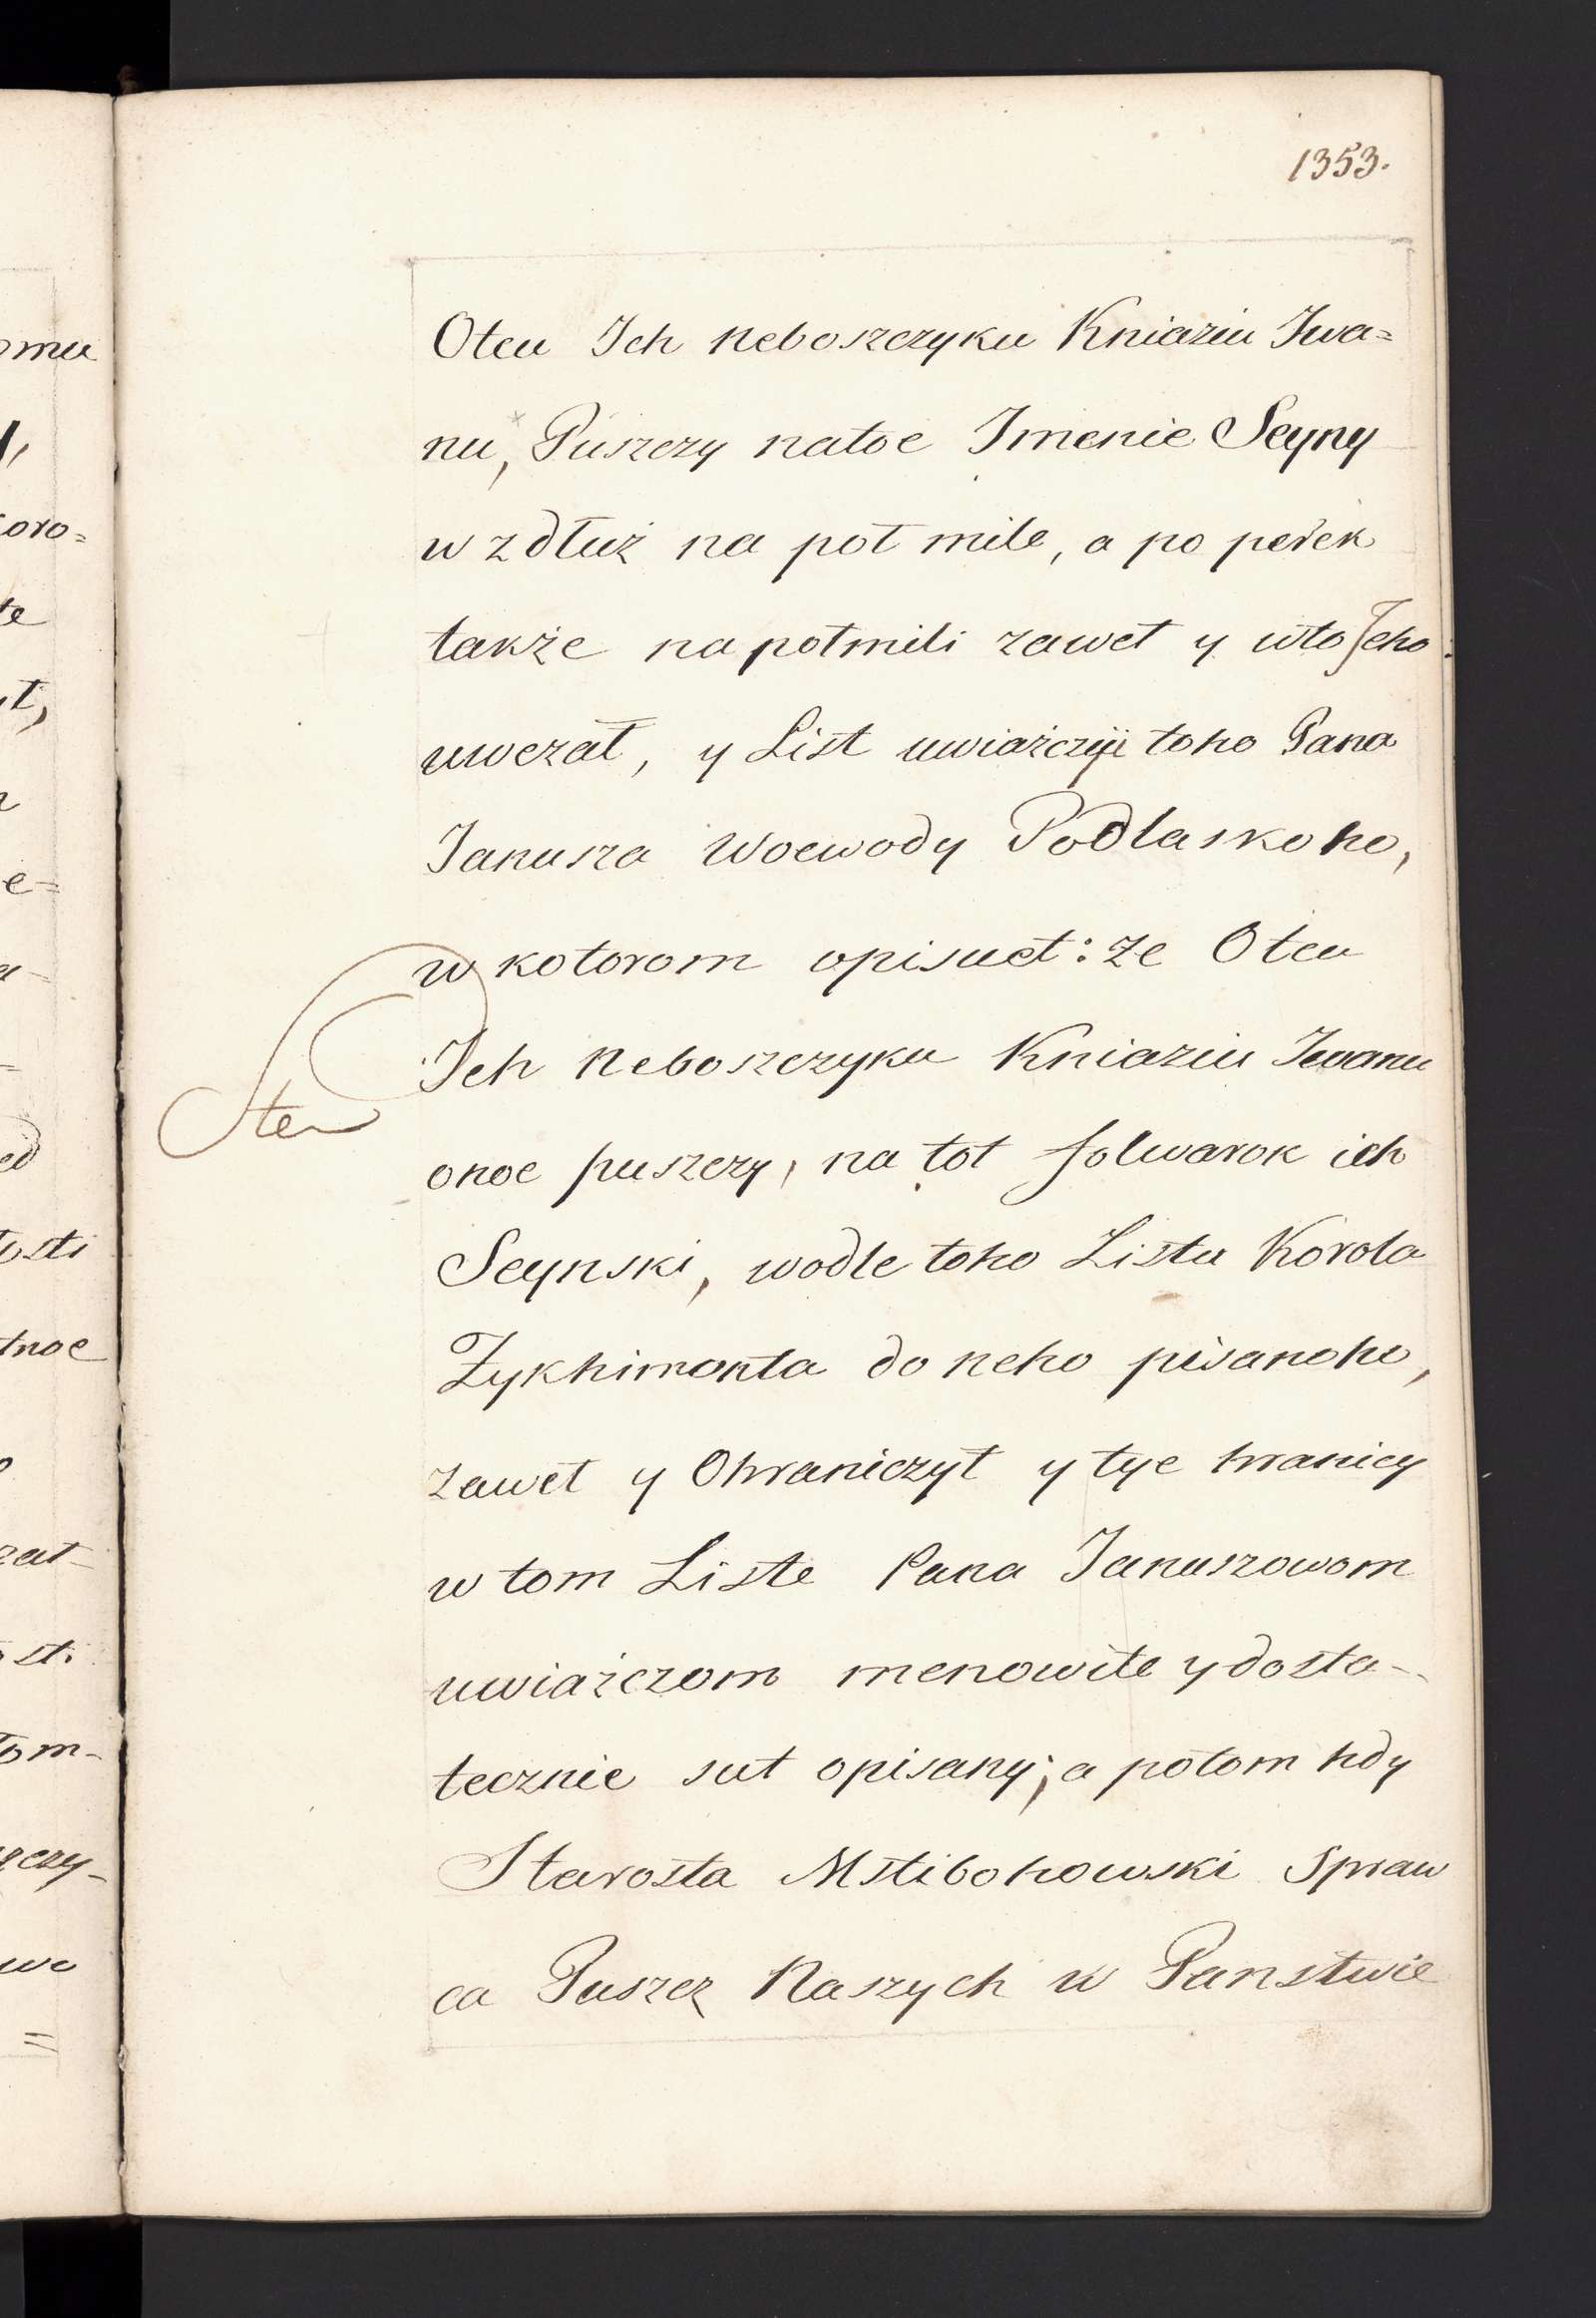 1353.
Otcu Ich Neboszczyku Kniaziu Iwa=
nu, Puszczy natoe Imenie Seyny
w zdłuż na poł mile, a po perek
także na połmili zaweł y wto Jeho
uwezał, y List uwiażczyi toho Pana
Janusza Woewody Podlaskoho,
w kotorom opisuet: że Otcu
Ich Neboszczyku Kniaziu Iwanu
onoe puszczy, na tot folwarok ich
Seynski, wodle toho Listu Korola
Zykhimonta do neho pisanoho,
zaweł y Ohraniczył y tye hranicy
w tom Liste Pana Januszowom
uwiażczom menowite y dosta-
tecznie sut opisany; a potom hdy
Starosta Mstibohowski Spraw
ca Puszcz Naszych w Panstwie